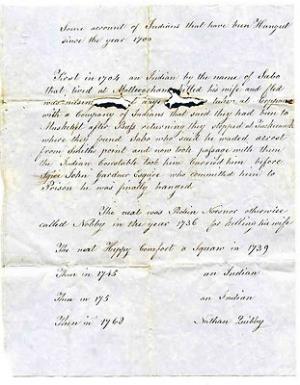 Some account of Indians that have been Hanged
since the year 1700
First in 1704 an Indian by the name of Sabo
that lived at killed his wife and fled
was
with a Company of Indians that said they had been to
after returning they stopped at
where they found Sabo who said he waded across
from point and now took passage with them
the Indian Constable took him Carried him before
John Gardner Esquire who committed him to
Prison he was finally hanged
The next was otherwise
called Nobby in the year 1736 for killing his wife
The next Happy Comfort a Squaw in 1739
Then in 1745 an Indian
Then in 175 an Indian
Then in 1763 Nathan Quibby